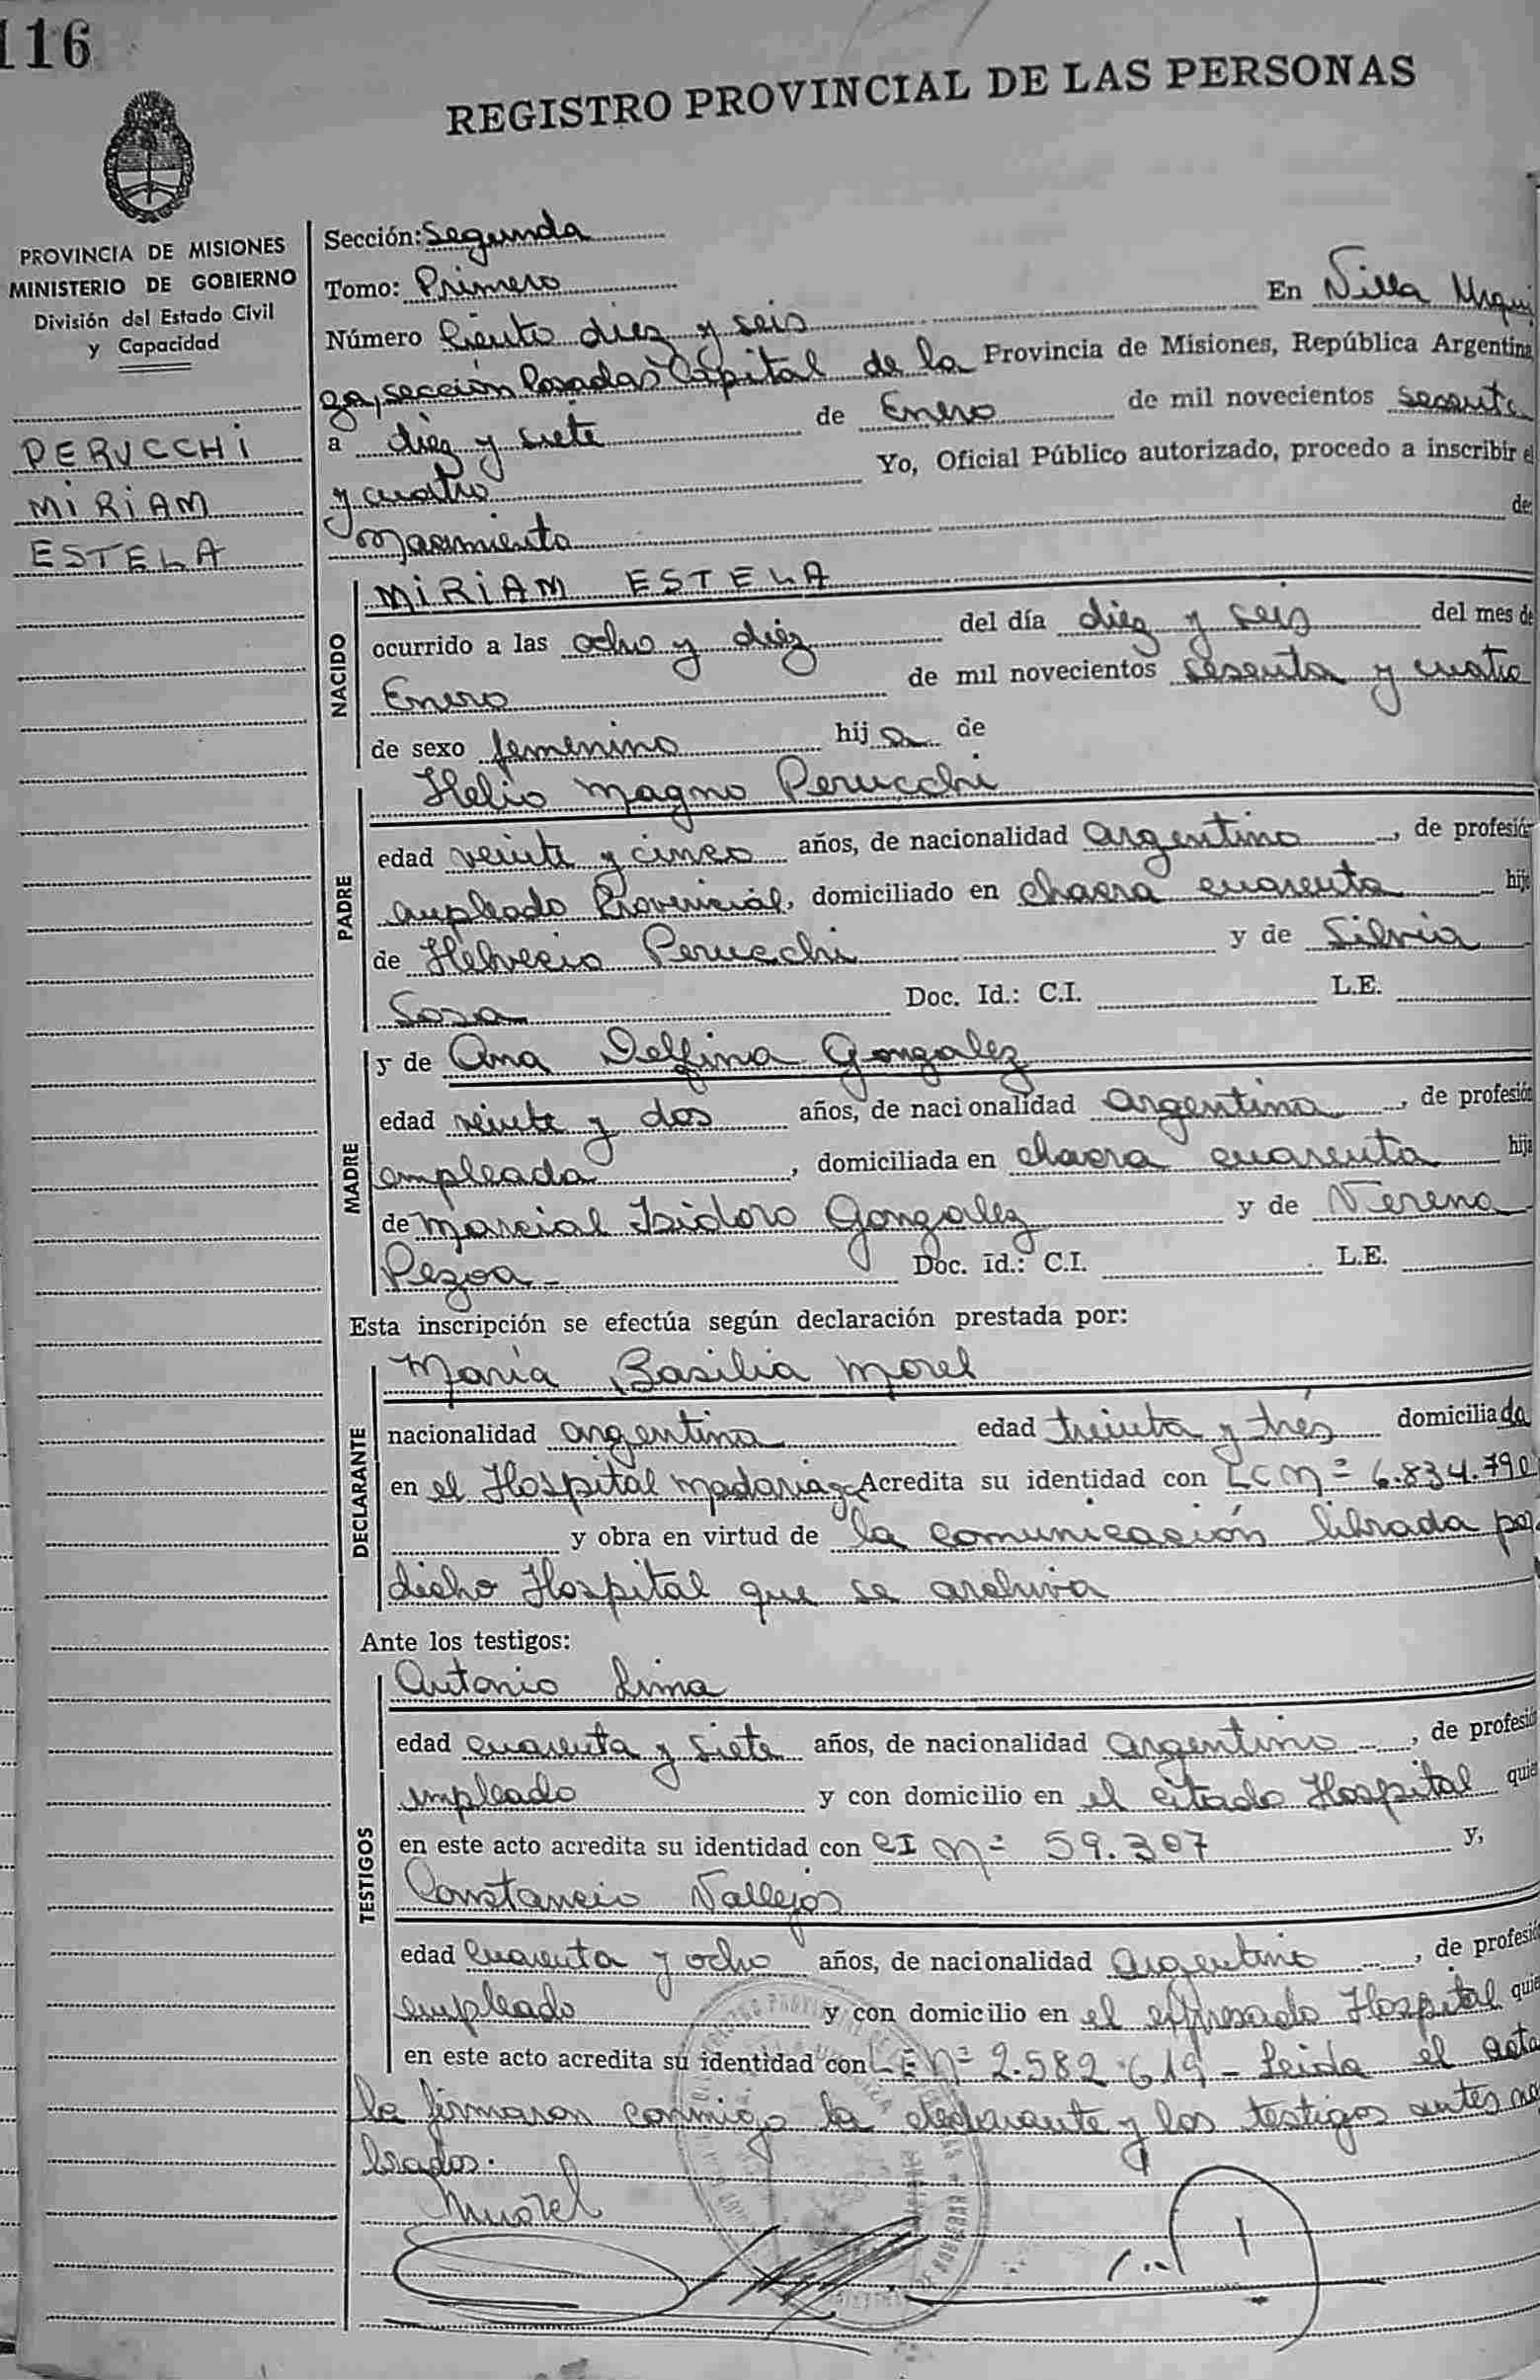 116
REGISTRO PROVINCIAL DE LAS PERSONAS
PROVINCIA DE MISIONES
MINISTERIO DE GOBIERNO
División del Estado Civil
y Capacidad
PERUCCHI
MIRIAM
ESTELA
Sección: Segunda
Tomo: Primero
Número Ciento diez y seis En Villa Urqui
za, sección Posadas Capital de la Provincia de Misiones, República Argentina
a diez y siete de Enero de mil novecientos sesenta
y cuatro Yo, Oficial Público autorizado, procedo a inscribir el
Nacimiento de:
NACIDO
MIRIAM ESTELA
ocurrido a las ocho y diéz del día diez y seis del mes de
Enero de mil novecientos sesenta y cuatro
de sexo femenino hija de
PADRE
Helio Magno Perucchi
edad veinte y cinco años, de nacionalidad argentino, de profesión
empleado Provincial, domiciliado en chacra cuarenta hijo
de Helvecio Perucchi y de Silvia
Sosa Doc. Id.: C.I. L.E.
MADRE
y de Ana Delfina Gonzalez
edad veinte y dos años, de nacionalidad argentina, de profesión
empleada, domiciliada en chacra cuarenta hija
de Marcial Isidoro Gonzalez y de Nerena
Pezoa - Doc. Id.: C.I. L.E.
Esta inscripción se efectúa según declaración prestada por:
DECLARANTE
María Basilia Morel
nacionalidad argentina edad treinta y trés domiciliada
en el Hospital Madariaga Acredita su identidad con LC Nº 6.834.790
y obra en virtud de la comunicación librada por
dicho Hospital que se archiva
Ante los testigos:
TESTIGOS
Antonio Lima
edad cuarenta y siete años, de nacionalidad argentino, de profesión
empleado y con domicilio en el citado Hospital quien
en este acto acredita su identidad con CI Nº 59.307 y,
Constancio Vallejos
edad cuarenta y ocho años, de nacionalidad argentino, de profesión
empleado y con domicilio en el expresado Hospital quien
en este acto acredita su identidad con LE Nº 2.582.619 - Leida el acta
la firmaron conmigo la declarante y los testigos antes no
brados.
Morel